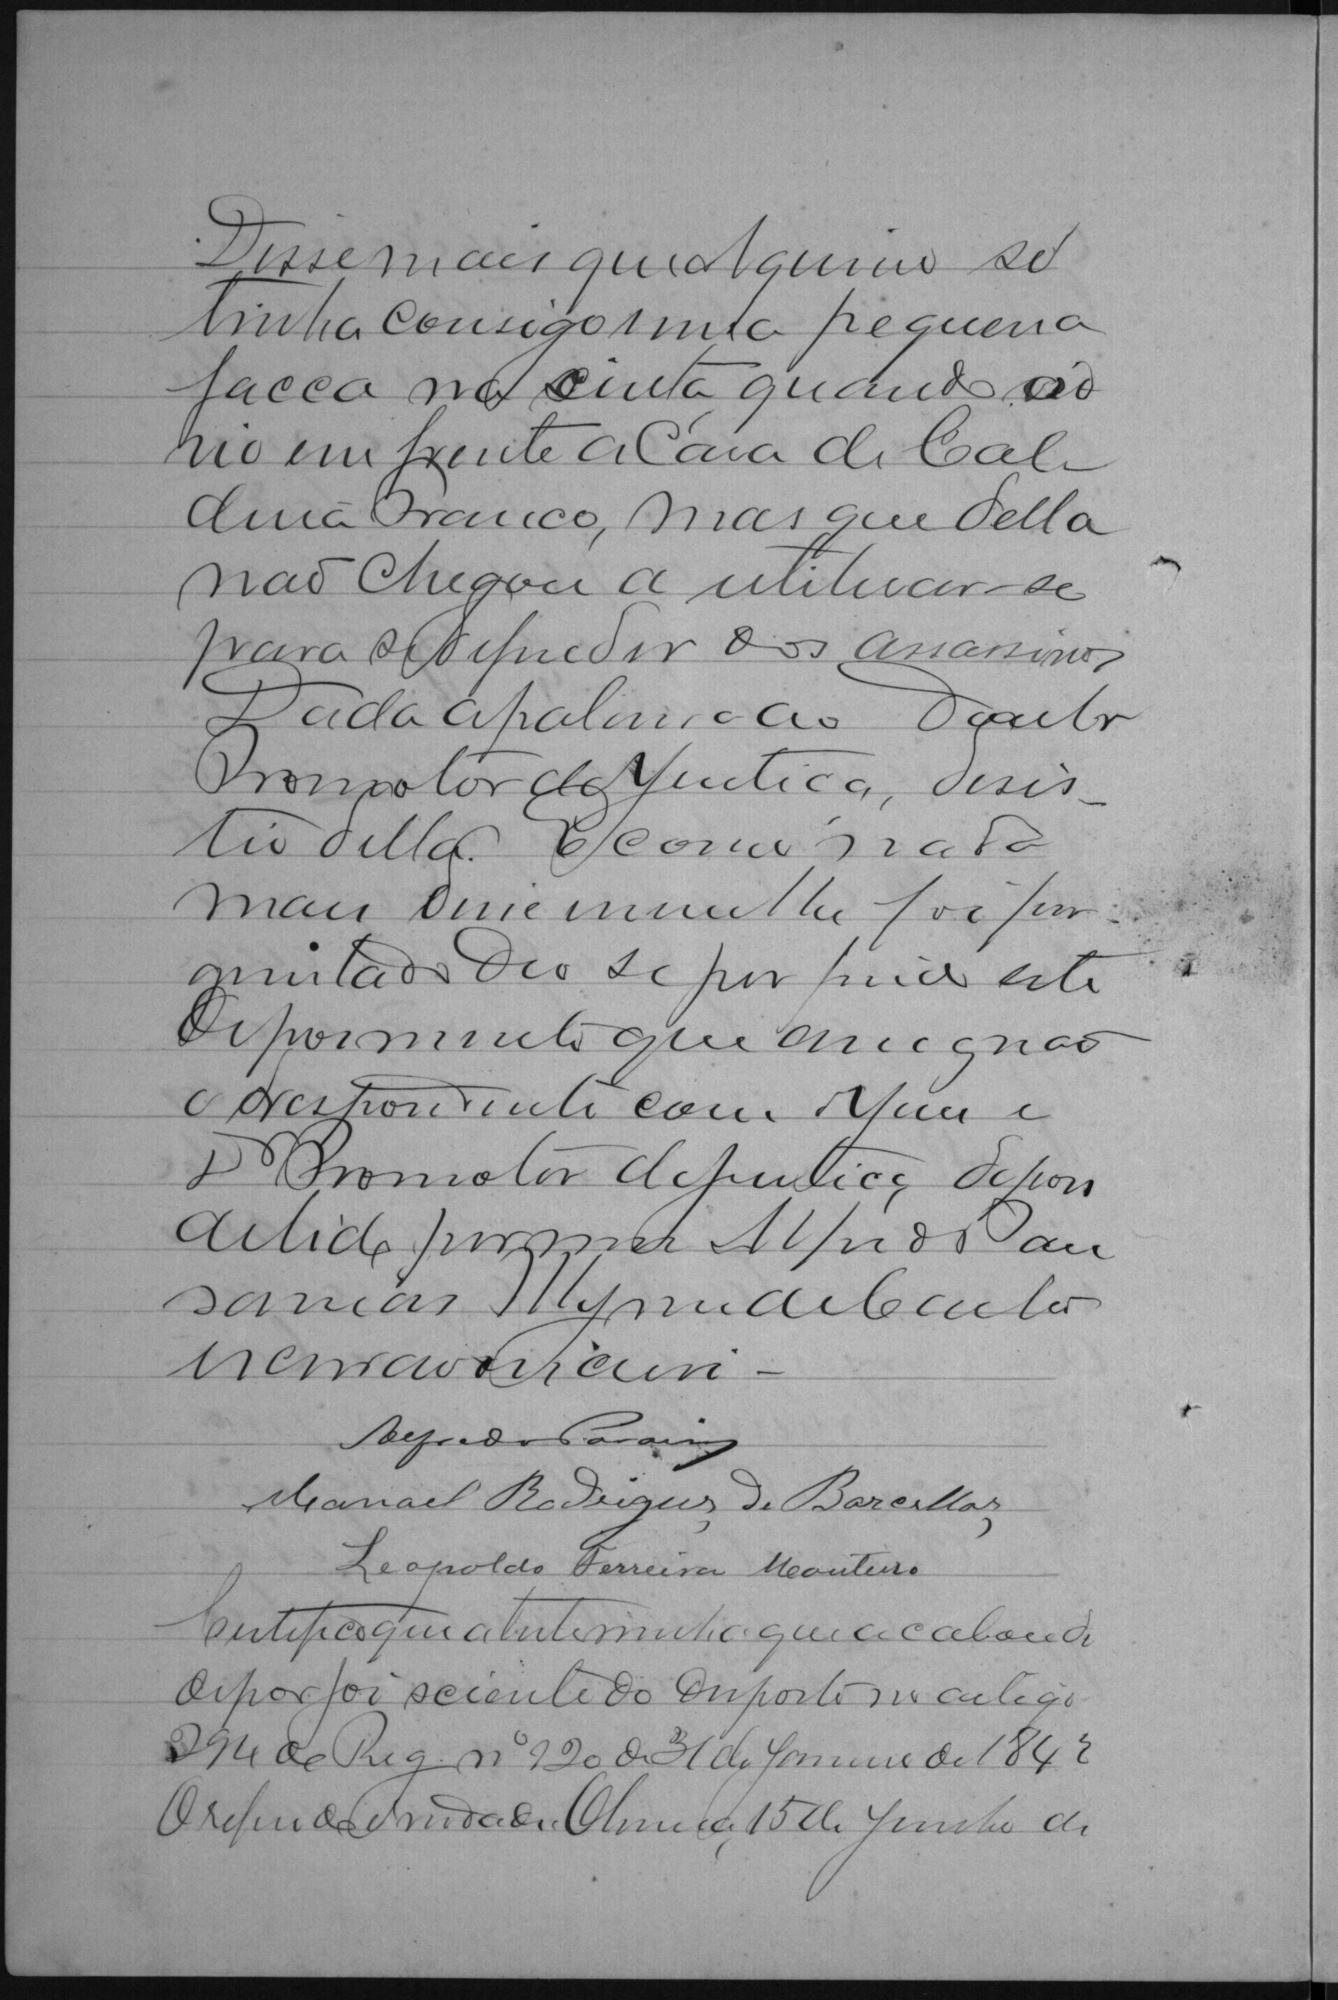 Disse mais que Aquino só
tinha consigo uma pequena
facca na cinta quando cá
hio em frente a Casa de Cal
dina Franco, mas que della
não chegou a utilisar-se
para se defender dos assassinos
Dada a palavra ao Doutor
Promotor de Justiça, desis-
tio della. E como nada
mais disse nem lhe foi per
guntado deo se por findo este
depoimento que assignão
o respondente com o Juiz e
Dr Promotor de justiça, depois
de lido por mim Alfredo Pau
sanias Alypio de Castro
escrivão escrivi -
Alfredo
Manoel Rodrigues de Barcellos
Leopoldo Ferreira Monteiro
Certifico que a testemunha que acabou de
depor foi sciente do disposto no artigo
294 do Reg. nº 120 de 31 de Janeiro de 1842
O referido é verdade. 15 de Junho de